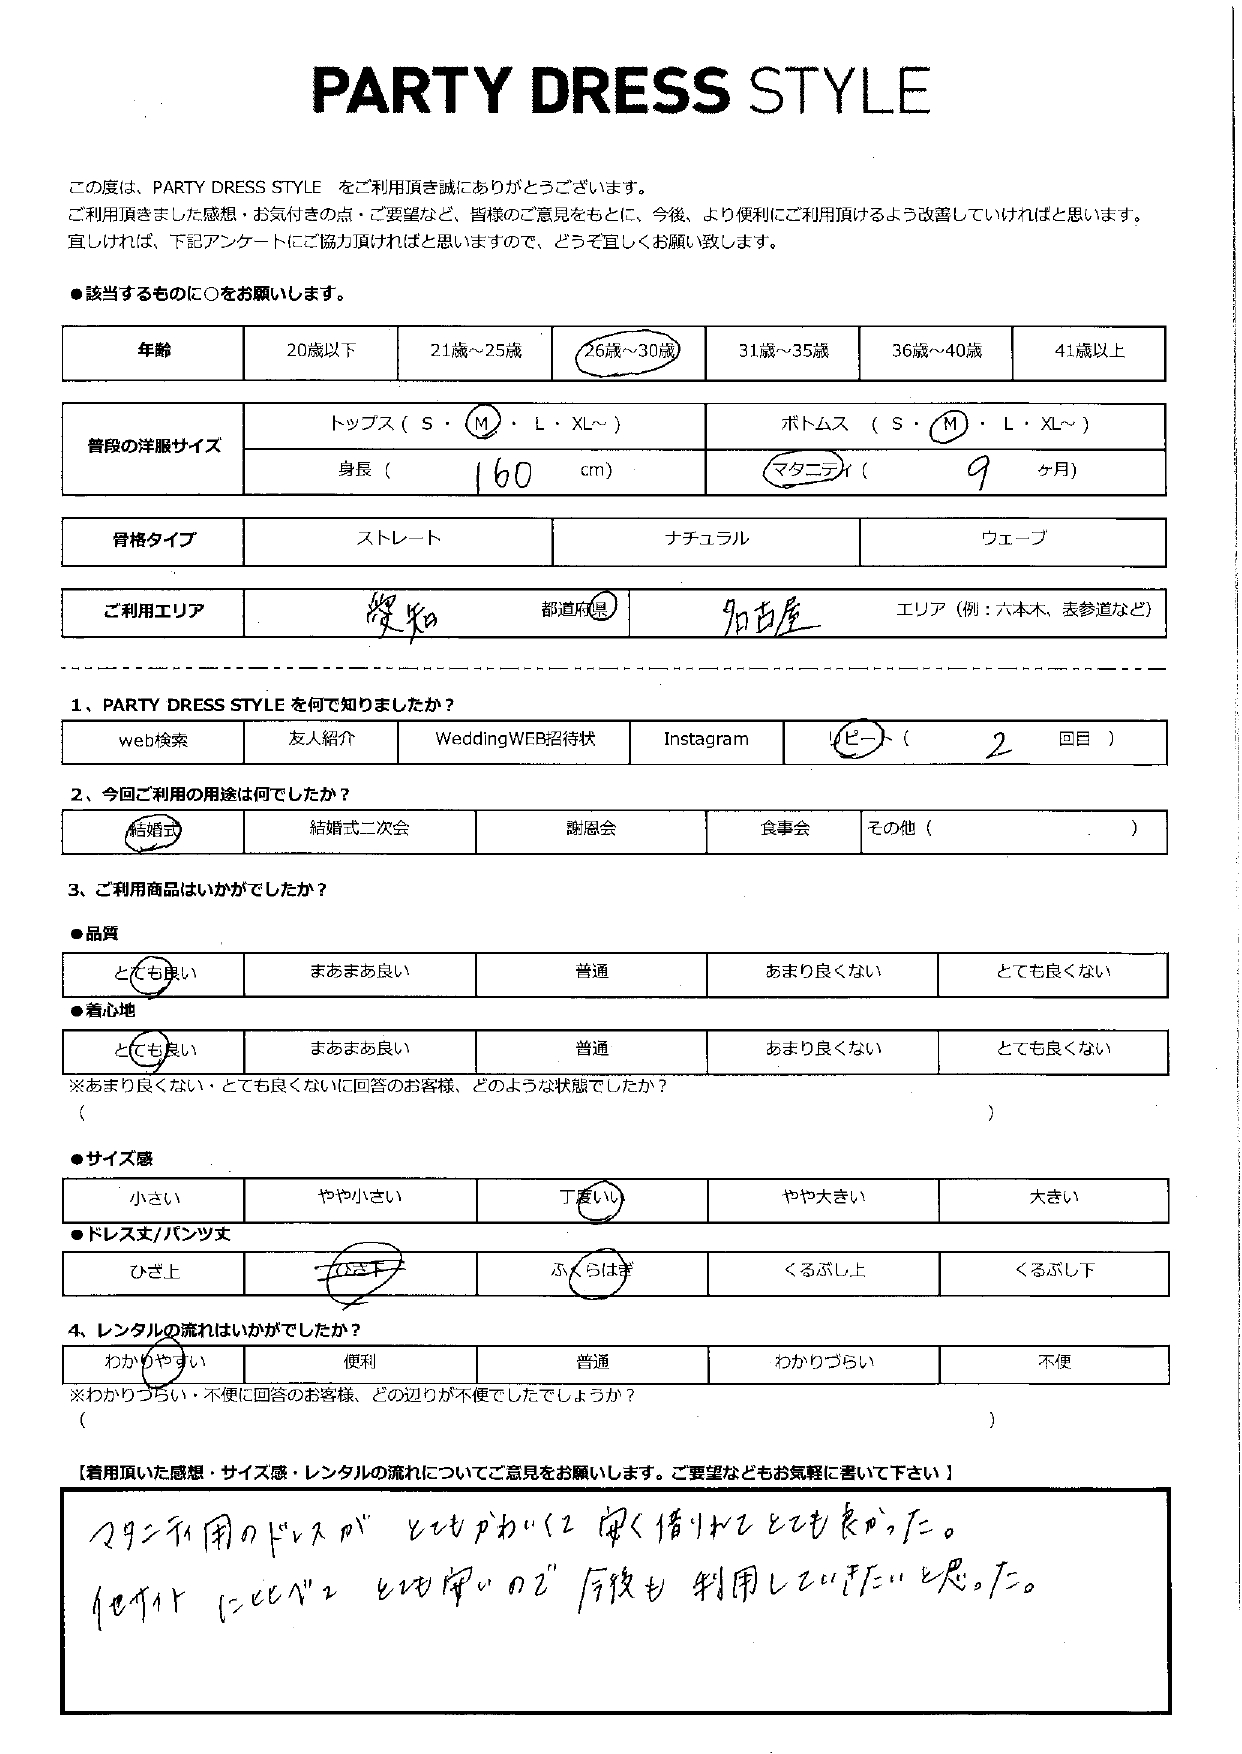 PARTY DRESS STYLE
この度は、PARTY DRESS STYLE をご利用頂き誠にありがとうございます。
ご利用頂きました感想・お気付きの点・ご要望など、皆様のご意見をもとに、今後、より便利にご利用頂けるよう改善していければと思います。
宜しければ、下記アンケートにご協力頂ければと思いますので、どうぞ宜しくお願い致します。
●該当するものに○をお願いします。
年齢 20歳以下 21歳～25歳 26歳～30歳 31歳～35歳 36歳～40歳 41歳以上
普段の洋服サイズ トップス ( S ・ M ・ L ・ XL～ ) ボトムス ( S ・ M ・ L ・ XL～ )
身長 ( 160 cm) マタニティ ( 9 ヶ月)
骨格タイプ ストレート ナチュラル ウェーブ
ご利用エリア 愛知 都道府県 名古屋 エリア（例：六本木、表参道など）
1、PARTY DRESS STYLE を何で知りましたか？
web検索 友人紹介 WeddingWEB招待状 Instagram リピート ( 2 回目 )
2、今回ご利用の用途は何でしたか？
結婚式 結婚式二次会 謝恩会 食事会 その他 ( )
3、ご利用商品はいかがでしたか？
●品質
とても良い まあまあ良い 普通 あまり良くない とても良くない
●着心地
とても良い まあまあ良い 普通 あまり良くない とても良くない
※あまり良くない・とても良くないに回答のお客様、どのような状態でしたか？
( )
●サイズ感
小さい やや小さい 丁度いい やや大きい 大きい
●ドレス丈/パンツ丈
ひざ上 ひざ下 ふくらはぎ くるぶし上 くるぶし下
4、レンタルの流れはいかがでしたか？
わかりやすい 便利 普通 わかりづらい 不便
※わかりづらい・不便に回答のお客様、どの辺りが不便でしたでしょうか？
( )
【着用頂いた感想・サイズ感・レンタルの流れについてご意見をお願いします。ご要望などもお気軽に書いて下さい】
マタニティ用のドレスが とてもかわいくて 安く借りれてとても良かった。
他サイト にくらべて とても安いので 今後も 利用していきたいと思った。